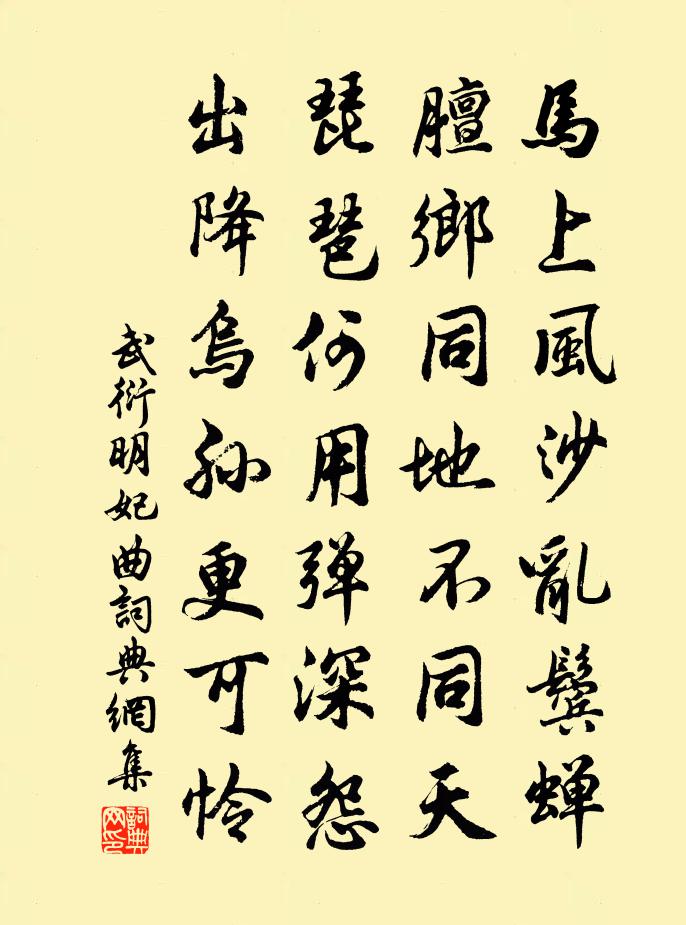 馬上風沙亂鬢蝉
膻鄉同地不同天
琵琶何用弹深怨
出降烏孙更可怜
武衍明妃曲詞典網集
詞典网印